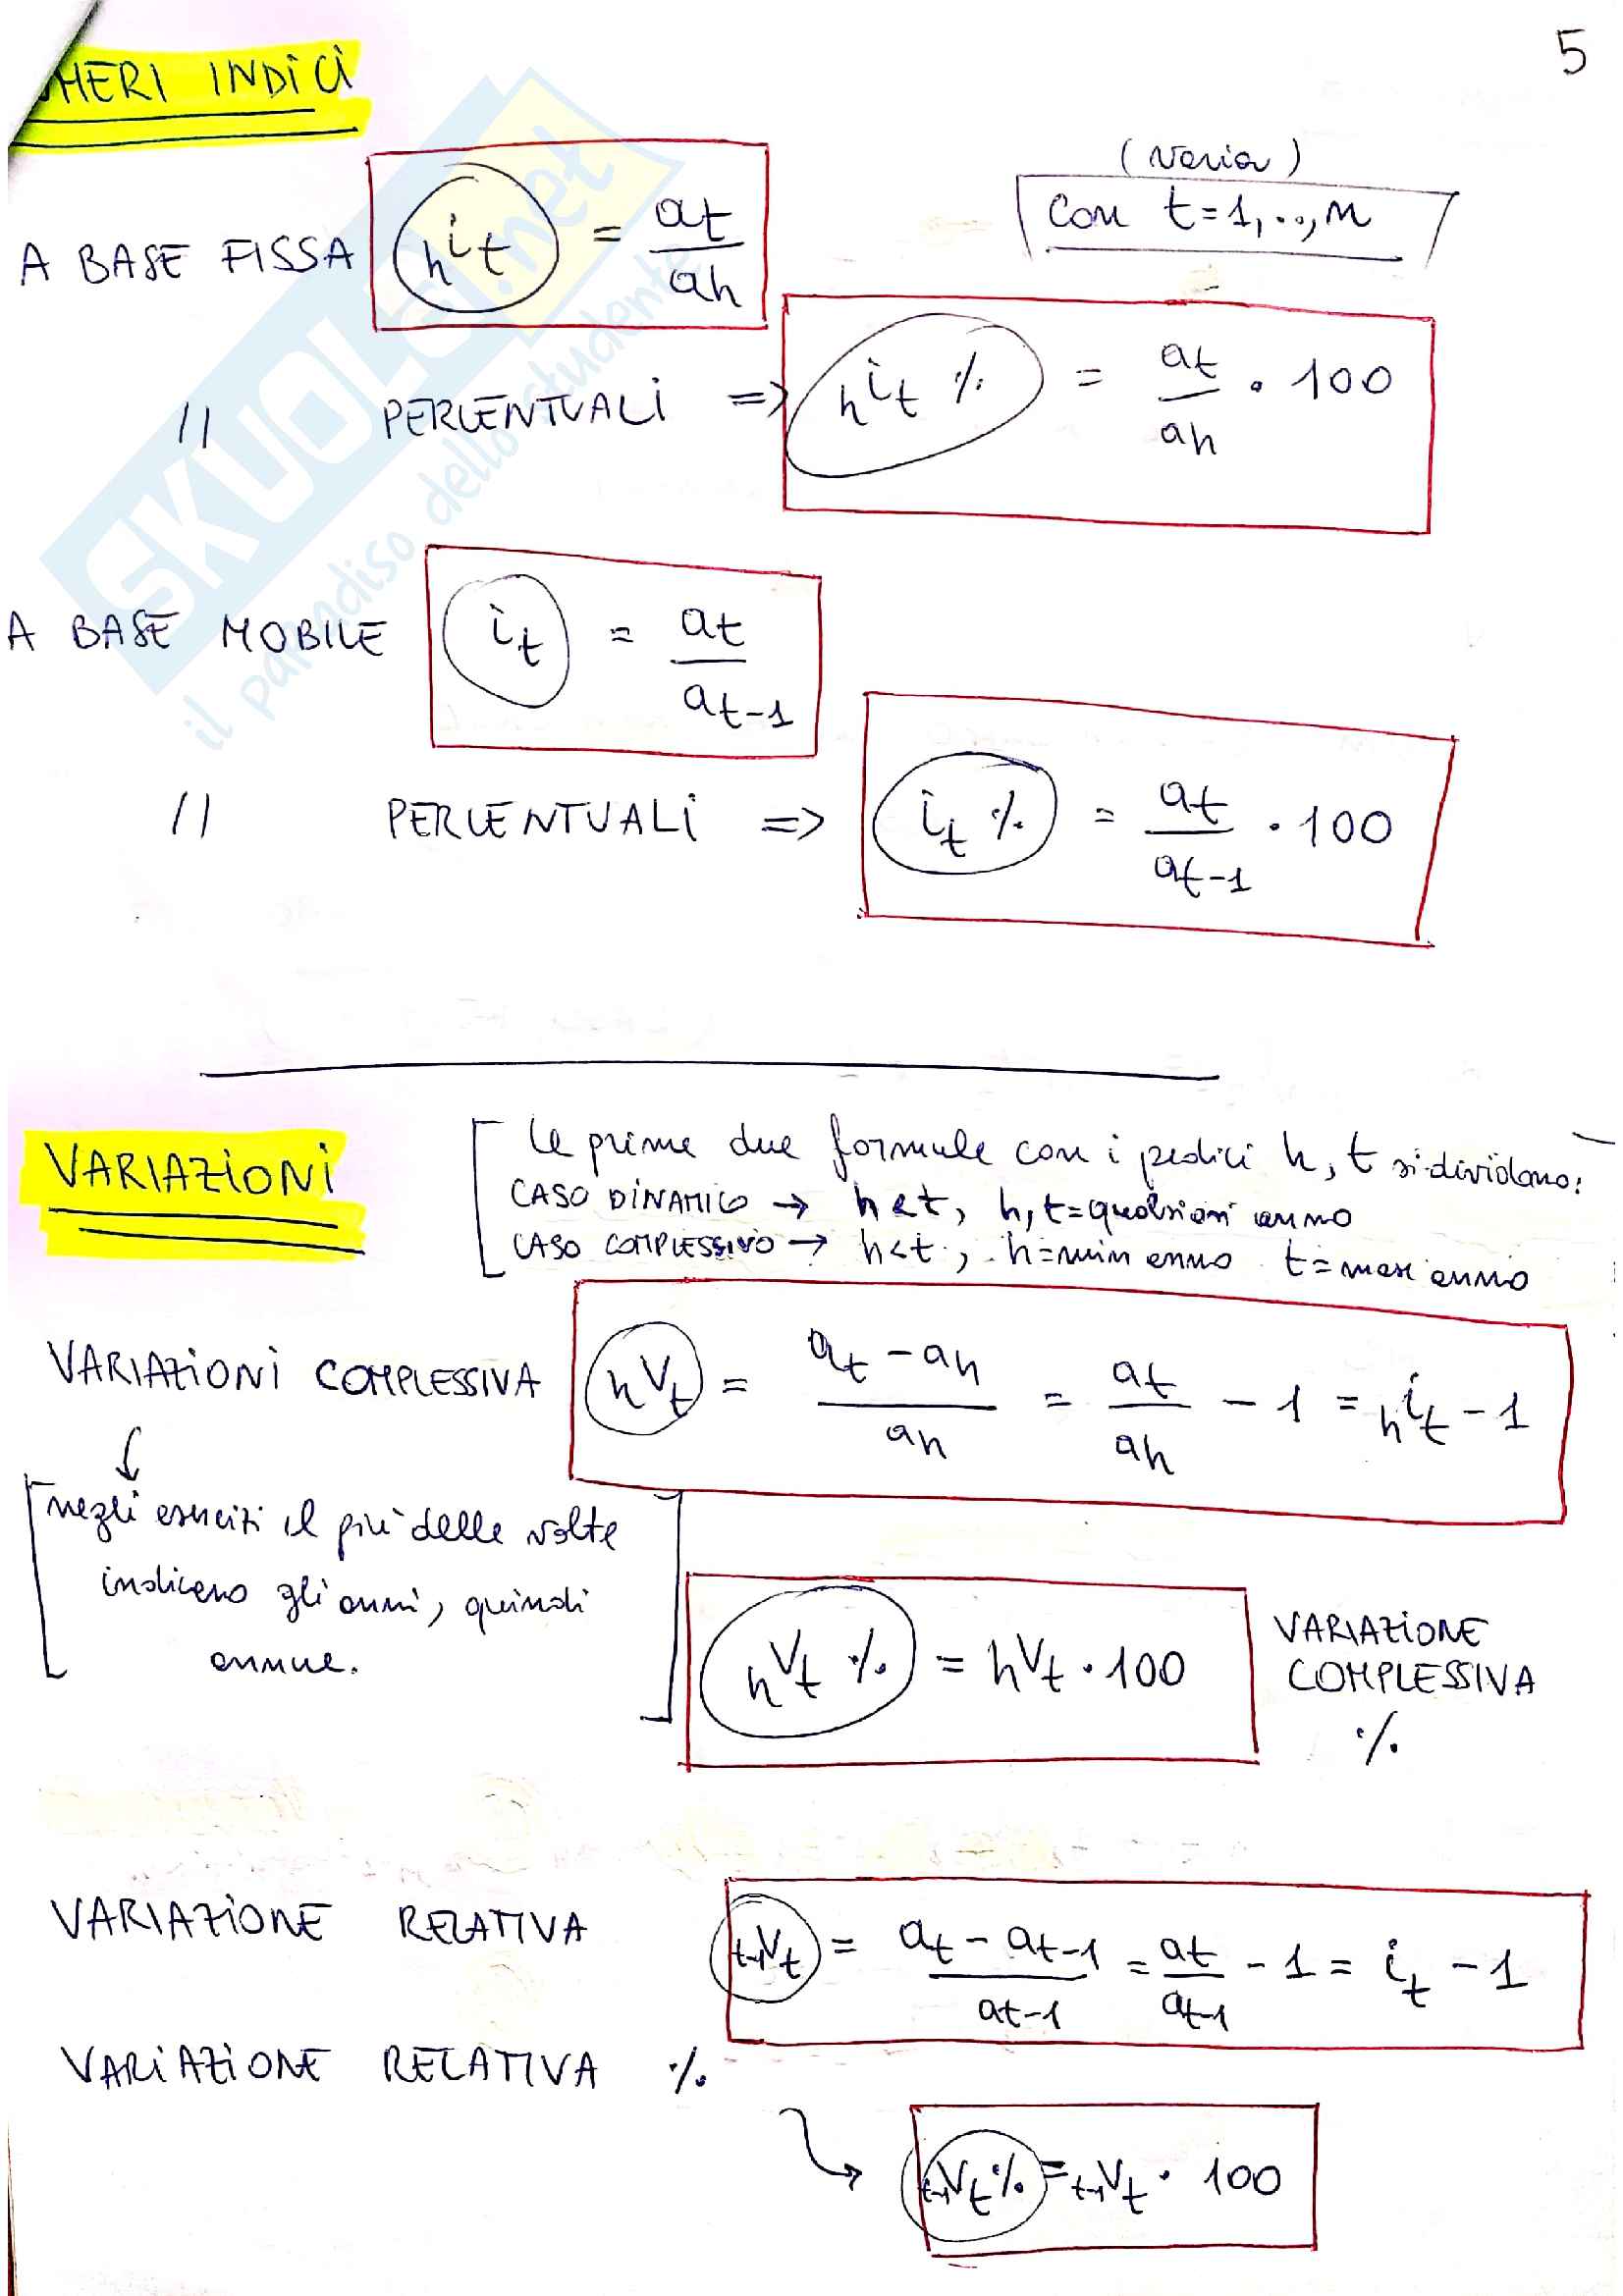 5
MERI INDICI
(varia)
con t=1,..,n
A BASE FISSA hit = at/ah
// PERCENTUALI => hit % = at/ah · 100
A BASE MOBILE it = at/at-1
// PERCENTUALI => it % = at/at-1 · 100
SKUOLA.net
il paradiso dello studente
VARIAZIONI
le prime due formule con i pedici h, t si dividono:
CASO DINAMICO → h<t, h,t=qualsiasi anno
CASO COMPLESSIVO → h<t, h=min anno t=max anno
VARIAZIONI COMPLESSIVA hVt = at-ah/ah = at/ah - 1 = hit - 1
negli esercizi il più delle volte
indicano gli anni, quindi
annue.
hVt % = hVt · 100
VARIAZIONE
COMPLESSIVA
%
VARIAZIONE RELATIVA t-1Vt = at-at-1/at-1 = at/at-1 - 1 = it - 1
VARIAZIONE RELATIVA %
t-1Vt% = t-1Vt · 100